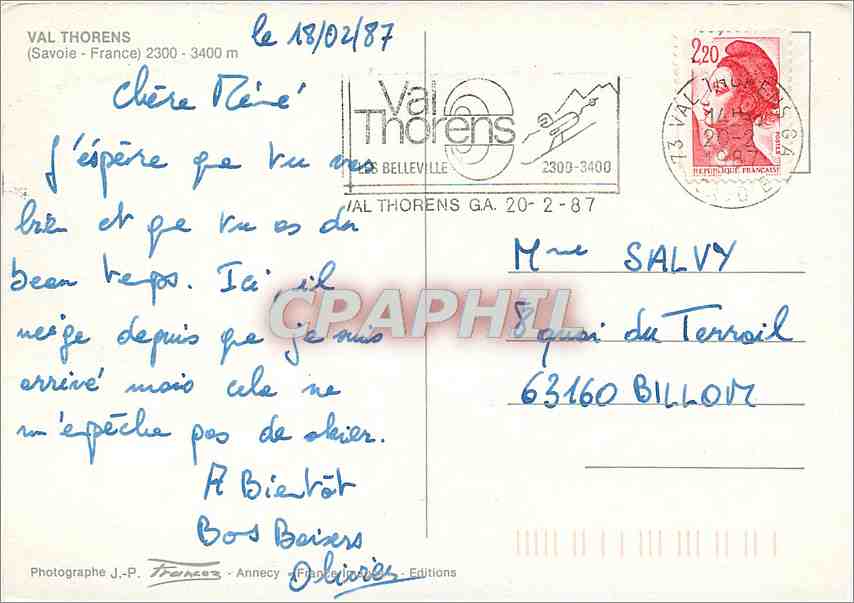 VAL THORENS
(Savoie - France) 2300 - 3400 m
le 18/02/87
Chère Mémé
J'éspère que tu vas
bien et que tu as du
beau temps. Ici, il
neige depuis que je suis
arrivé mais cela ne
m'epêche pas de skier.
A Bientôt
Bos Baisers
Olivier
Photographe J.-P. Francoz - Annecy - France - Editions
Val
Thorens
LES BELLEVILLE
2300-3400
VAL THORENS G.A. 20-2-87
2,20
REPUBLIQUE FRANCAISE
73 VAL THORENS G.A
14H
20-2
1987
Mme SALVY
8 quai du Terrail
63160 BILLOM
CPAPHIL